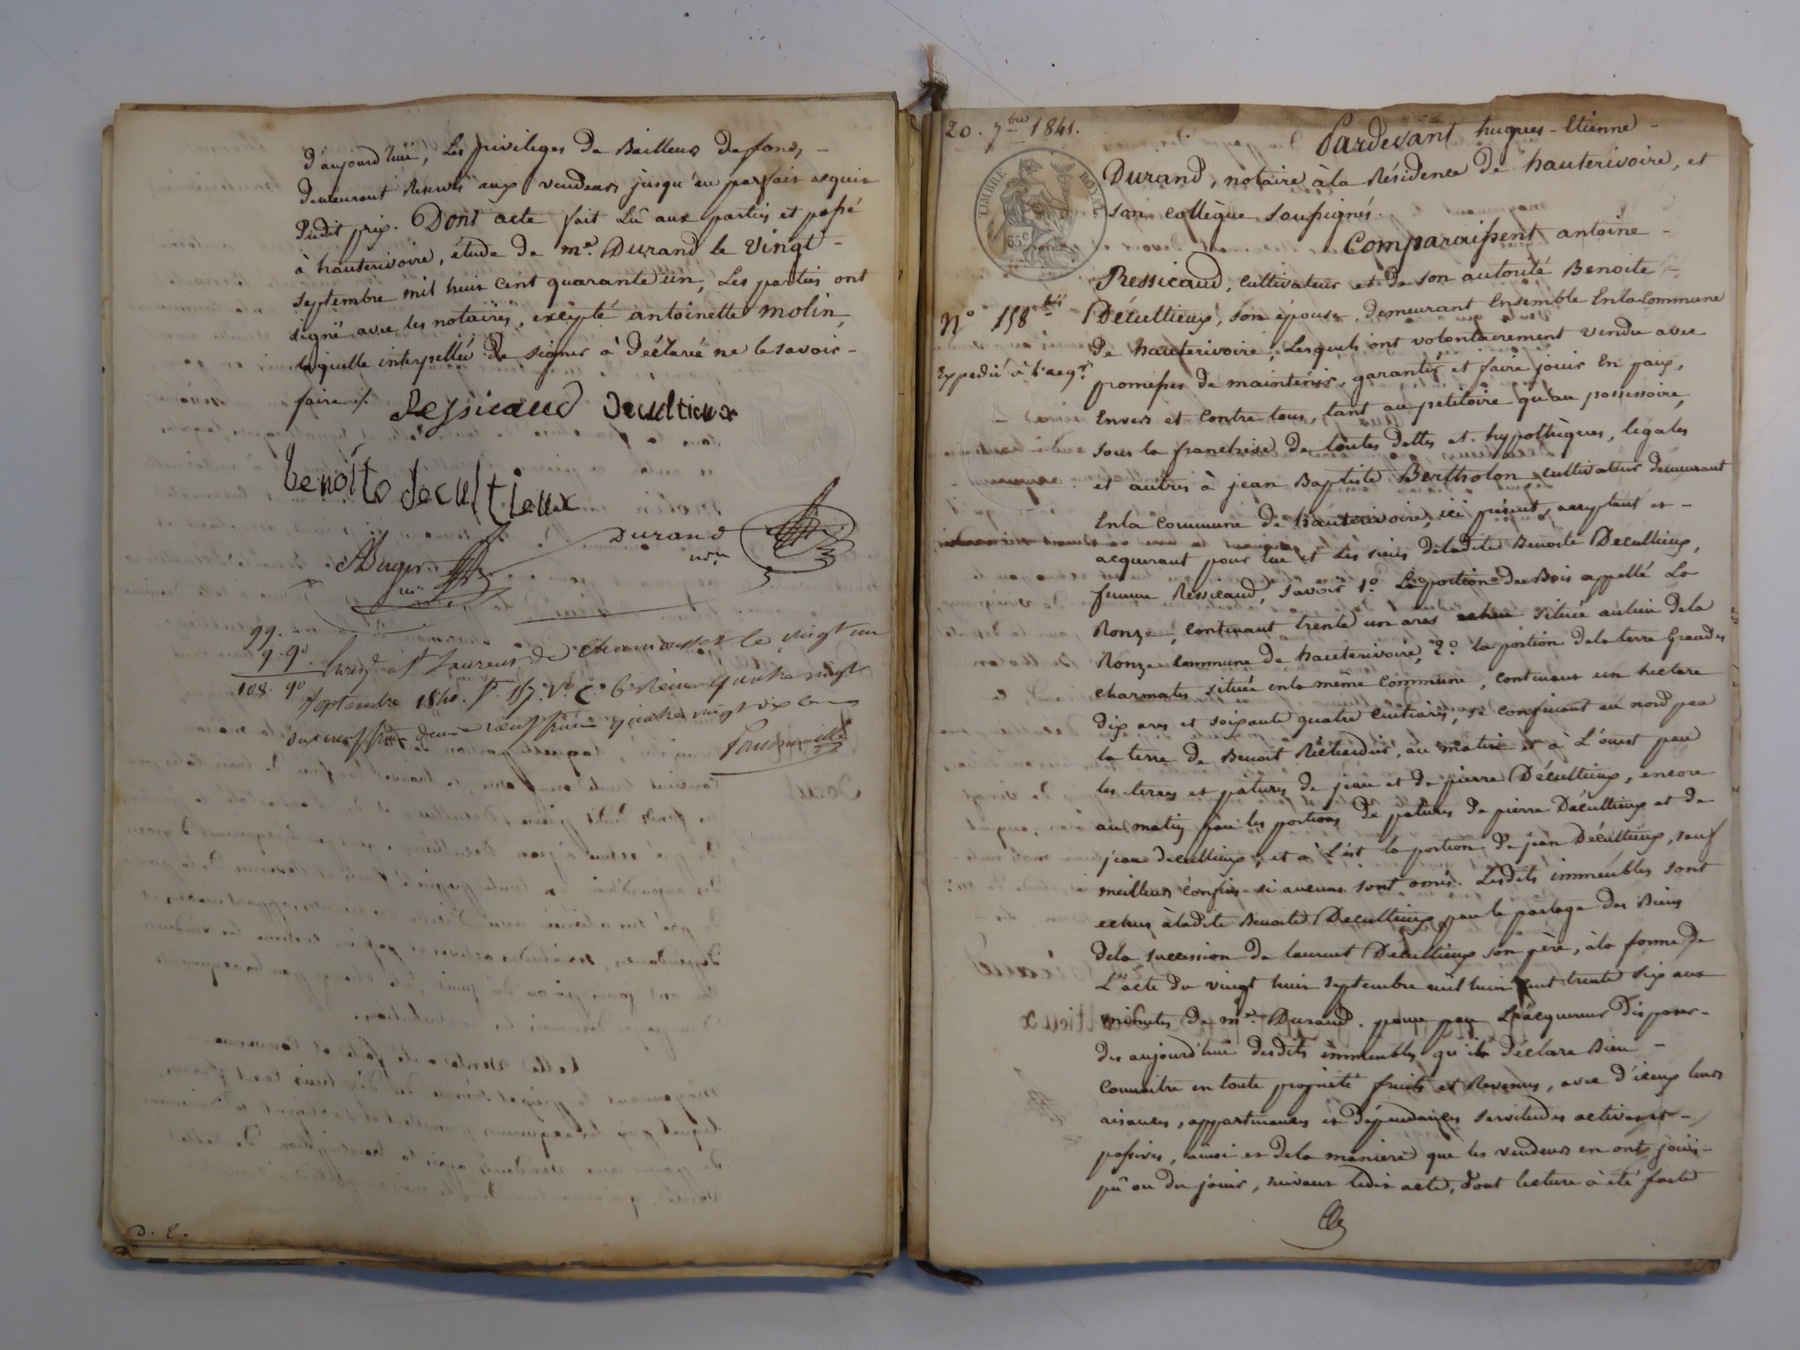 d'aujourd'huï, les privileges de Bailleur de fonds
demeurant réservés aux vendeurs jusqu'au parfait acquit
dudit prix. Dont acte fait Lû aux parties et passé
à hauterivoire, étude de me. Durand le vingt
septembre mil huit cent quarante un, Les parties ont
signé avec les notaires, excépté antoinette molin,
laquelle interpellée de signer à déclaré ne le savoir
faire ./.
Ressicaud Decultieux
benoîte decultieux
Durand
nre
99.
9. 90
108. 90
Enrgé à St Laurent de Chamousset le vingt un
Septembre 184
D. E.
20. 7bre 1841.
Pardevant hugues-Etienne
Durand, notaire à la Résidence de hauterivoire, et
son collègue soussignés.
TIMBRE ROYAL
35 c
Comparaissent antoine
Ressicaud, cultivateur et de son autorité Benoite
No 158 bis
Décultieux, son épouse, demeurant Ensemble En la Commune
de hauterivoire, Lesquels ont volontairement vendu avec
Expédié à l'acqr.
promesses de maintenir, garantir et faire jouir En paix,
Envers et contre tous, tant au petitoire qu'au possessoire,
sous la franchise de toutes dettes et hypothèques, légales
et autres à jean Baptiste Bertholon cultivateur demeurant
En la commune de hauterivoire, ici présent, acceptant et
acquerant pour lui et les siens de ladite Benoite Decultieux,
femme Ressicaud, Savoir 1o. La portion du Bois appellé La
Ronze, contenant trente un ares située au lieu de la
Ronze commune de hauterivoire, 2o. la portion de la terre Grandes
charmates située en la même commune, contenant un hectare
dix ares et soixante quatre centiares, se confinant au nord par
la terre de Benoit, au matin et à L'ouest par
les terres et pâtures de jean et de pierre Décultieux, encore
au matin par les portions de pâtures de pierre Décultieux et de
jean decultieux, et à L'est la portion de jean Décultieux, sauf
meilleurs confins si aucuns sont omis. Lesdits immeubles sont
echus à ladite Benoite Decultieux par le partage des Biens
de la succession de laurent Decultieux son père, à la forme de
L'acte du vingt huit septembre mil huit cent trente six aux
minutes de me. Durand. pour par L'acquereur Disposer
des aujourd'hui desdits immeubles qu'il déclare Bien
connaitre en toute propriété fruits et Revenus, avec d'iceux leurs
aisances, appartenances et Dépendances servitudes actives et
passives, ainsi et de la maniere que les vendeurs en ont joui
pû ou du jouir, suivant ledit acte, dont lecture à été faite